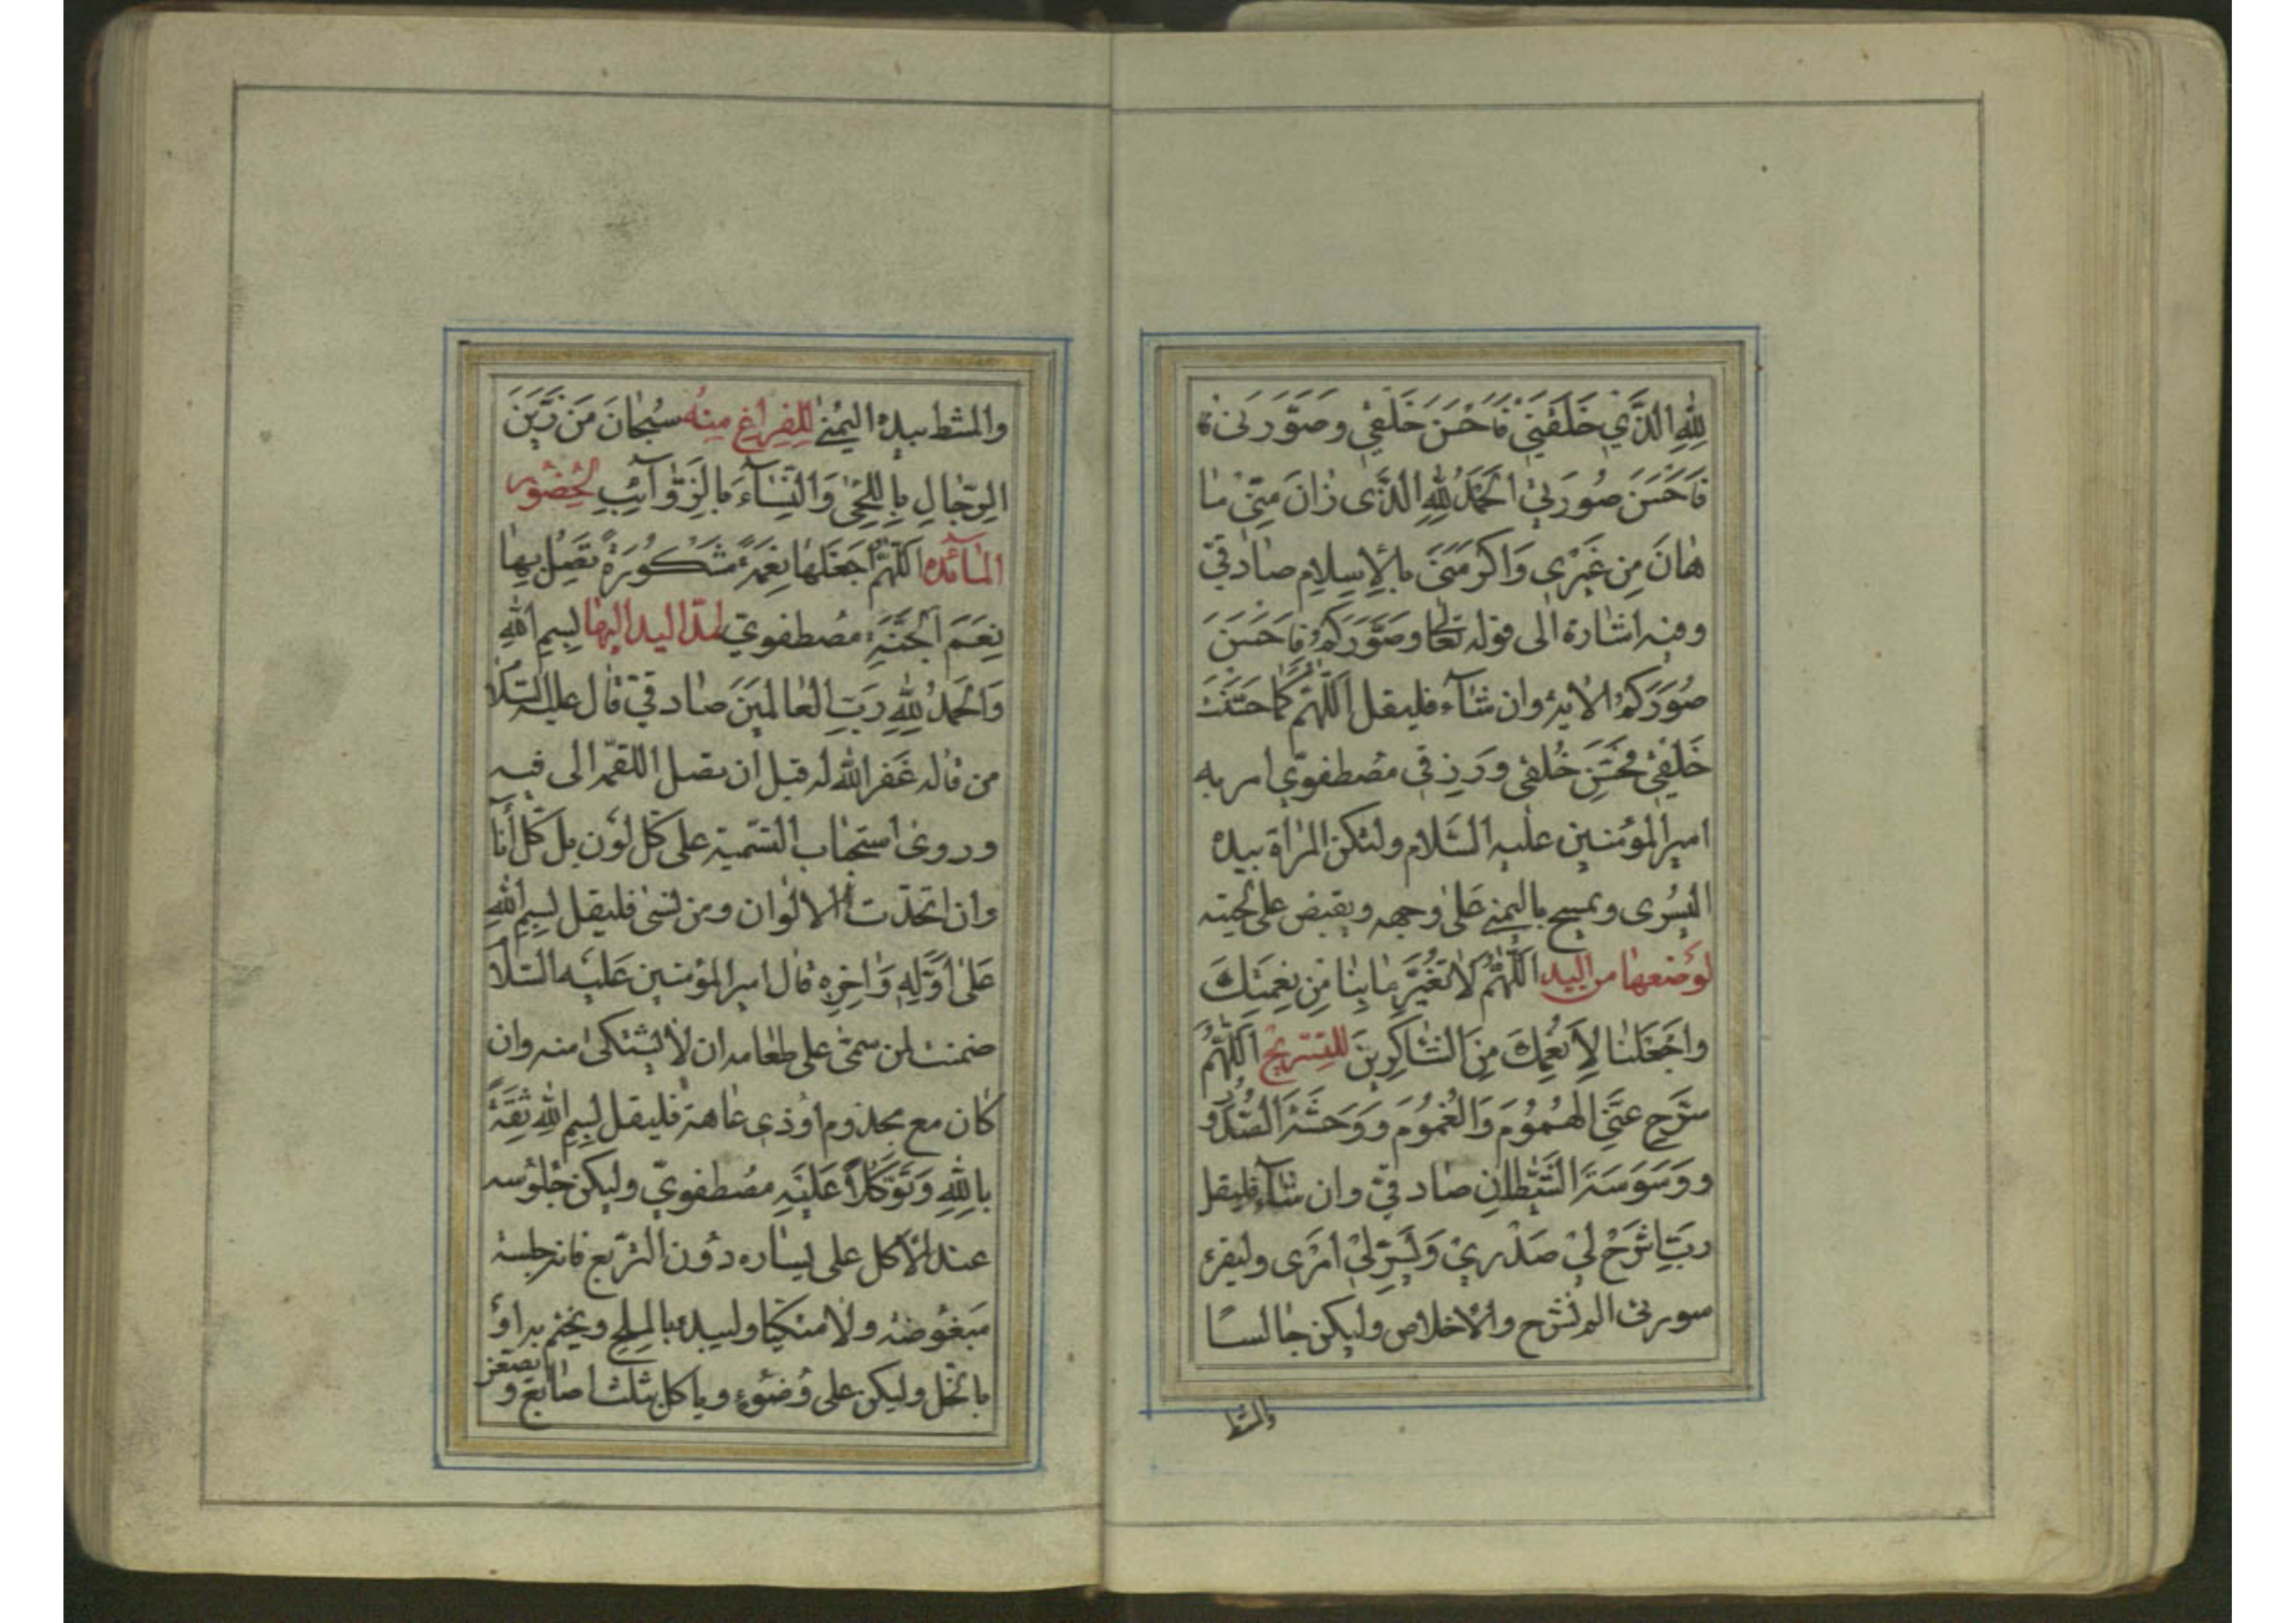 لِلّٰهِ الَّذِي خَلَقَنِي فَاَحْسَنَ خَلْقِي وَصَوَّرَنِي
فَاَحْسَنَ صُورَتِي اَلْحَمْدُ لِلّٰهِ الَّذِی زٰانَ مِنِّي مٰا
شٰانَ مِن غَيْرِي وَاَكْرَمَنِي بِالْاِسْلٰامِ صٰادقيّ
وفيه اشٰارة الى قوله تعٰالى وصَوَّرَكُمْ فَاَحْسَنَ
صُوَرَكُمْ الايۀ وان شٰآء فليقل اَللّٰهُمَّ كَمٰا حَسَّنْتَ
خَلْقِي فَحَسِّنْ خُلْقِي وَرِزقي مصُطفويّ امر به
اميرالمؤمنين عليه السَّلام ولتكن المرٰاة بيده
اليُسْرى ويمسح باليمنى عَلى وجهه ويقبض على لحيته
لوَضعهٰا من اليد اَللّٰهُمَّ لاٰ تُغَيِّر مٰا بِنٰا مِن نِعْمَتِكَ
واجْعَلْنٰا لِاَنْعُمِكَ مِنَ الشّٰاكِرِينَ للتسريح اَللّٰهُمَّ
سَرِّح عَنِّي الْهُمُومَ وَالْغُمُومَ وَوَحْشَةَ الصُّدُورِ
وَوَسْوَسَةَ الشَّيْطٰانِ صٰادقيّ وان شٰآء فليقل
ربِّ اشْرَحْ لِي صَدْرِي وَيَسِّرْ لِي اَمْرِی وليقرء
سورتي الم نشرح والاخلاص وليكن جٰالسًا
والمشط
والمشط بيده اليمُنى لِلفِرٰاغِ مِنهُ سُبْحٰانَ مَن زَيَّنَ
الرِّجٰالِ بِاللِّحٰى وَالنِّسٰآءَ بِالذَّوٰآئِبِ لحُضُور
المٰائده اَللّٰهُمَّ اجْعَلْهٰا نِعْمَةً مَشْكُورَةً تَصِلُ بِهٰا
نِعَمَ الْجَنَّةِ مصُطفويّ لمدّ اليد اليهٰا بِسْمِ اللهِ
وَالْحَمْدُ لِلّٰهِ رَبِّ الْعٰالَمِينَ صٰادقيّ قٰال عليه السّلا
من قٰاله غَفر الله له قبل ان يصل اللقمۀ الى فيه
وروى استحبٰاب التسّمية على كلّ لَون بل كلّ انٰا
وان اتحّدت الالوان ومن نسَى فليقل بِسْمِ اللهِ
عَلىٰ اَوَّلِهِ وَاٰخِرِهِ قٰال اميرالمؤمنين عَليه السّلا
ضمنت لمن سمّى على طعٰامه ان لاٰ يشتكى منه وان
كٰان مع مجذوم اوذي عٰاهة فليقل بِسْمِ اللهِ ثِقَةً
بِاللهِ وَتَوَكُّلاً عَلَيْهِ مصُطفويّ وليكن جُلوُسه
عند الاَكل على يسٰاره دوُن التربّع فانه جلسة
مَبغوُضة ولا متكيٰا وليبدء بالملح ويختم به اوْ
بالخل وليكن على وُضوُء وياكل بثلث اصٰابع و
يصغر